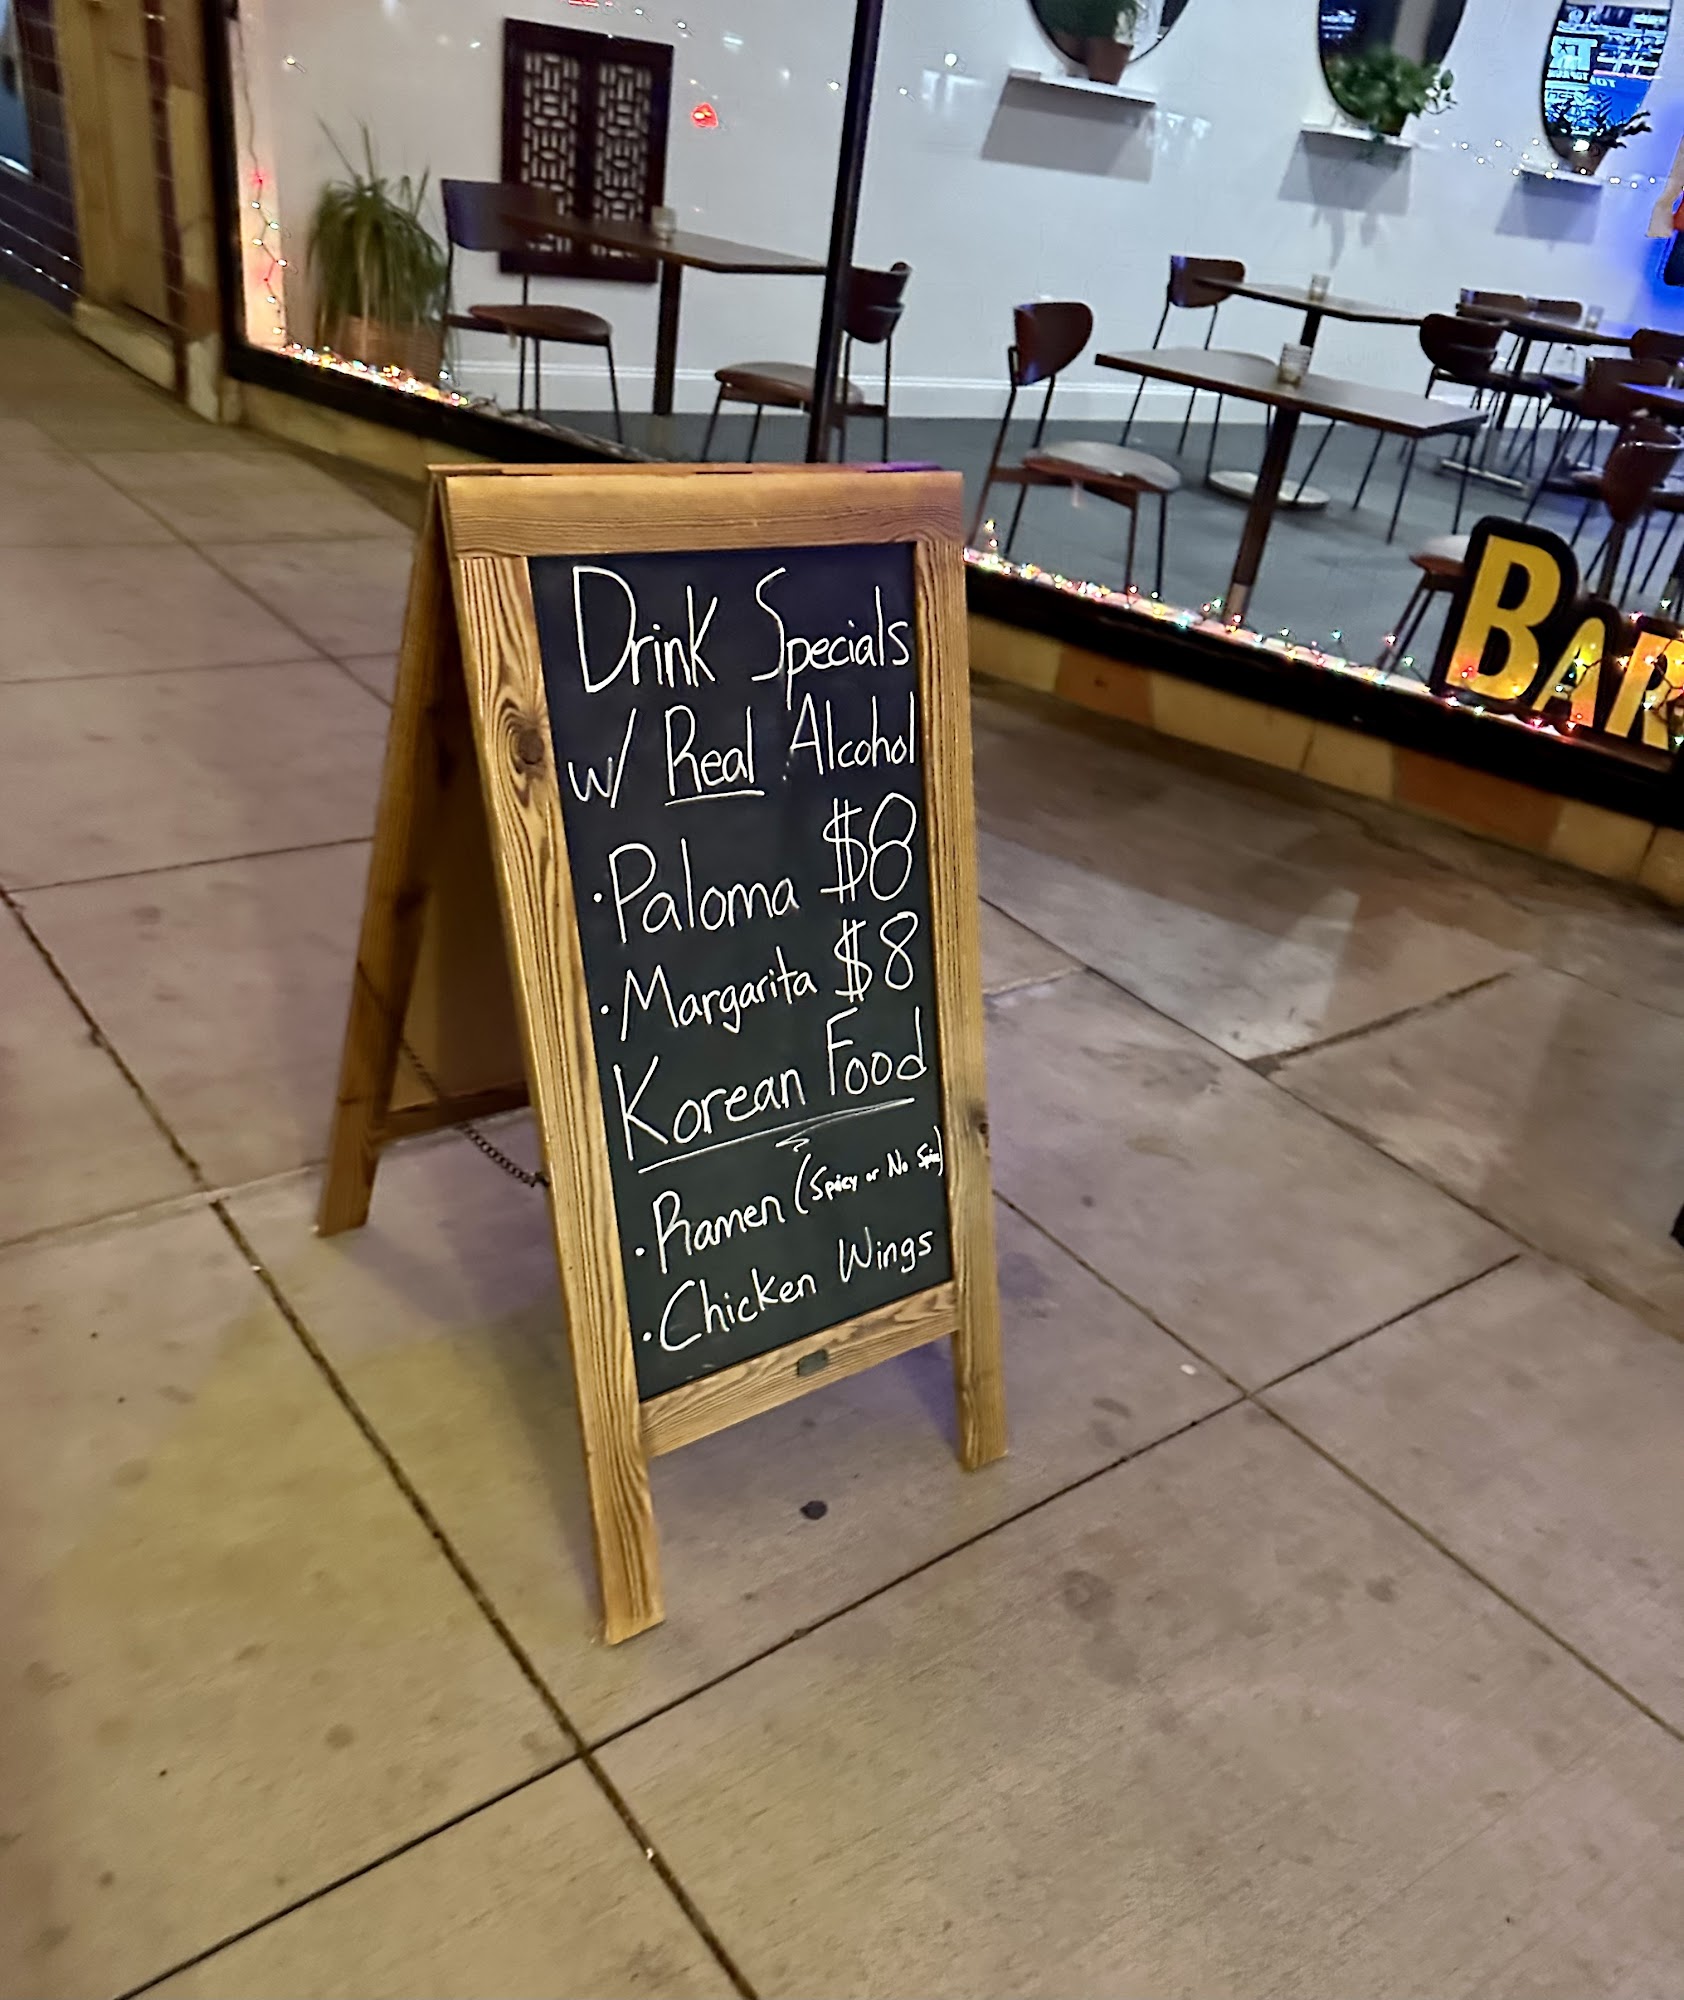 Drink Specials
w/ Real Alcohol
• Paloma $8
• Margarita $8
Korean Food
• Ramen (Spicy or No Spice)
• Chicken Wings
BAR